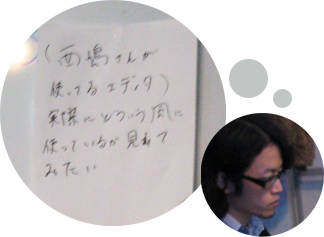 (西嶋さんが
使ってるエディタ)
実際にどういう風に
使っているが見れて
みたい